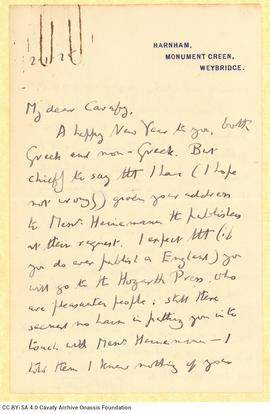 HARNHAM,
MONUMENT GREEN,
WEYBRIDGE.
My dear Cavafy,
A happy New Year to you, both
Greek and non-Greek. But
chiefly to say tht I have (I hope
not wrongly) given your address
to Messrs Heinemann the publishers
at their request. I expect tht (if
you do ever publish in England) you
will go to the Hogarth Press, who
are pleasanter people; still there
seemed no harm in putting you into
touch with Messrs Heinemann — I
told them I knew nothing of your
CC BY-SA 4.0 Cavafy Archive Onassis Foundation